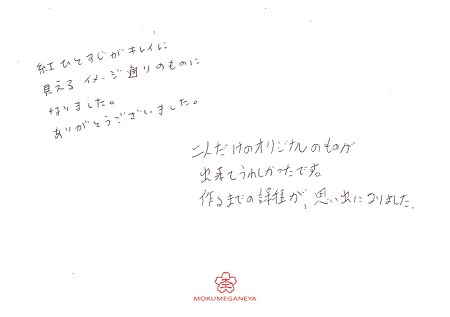 紅ひとすじがキレイに
見えるイメージ通りのものに
なりました。
ありがとうございました。
二人だけのオリジナルのものが
出来てうれしかったです。
作るまでの課程が、思い出になりました。
MOKUMEGANEYA